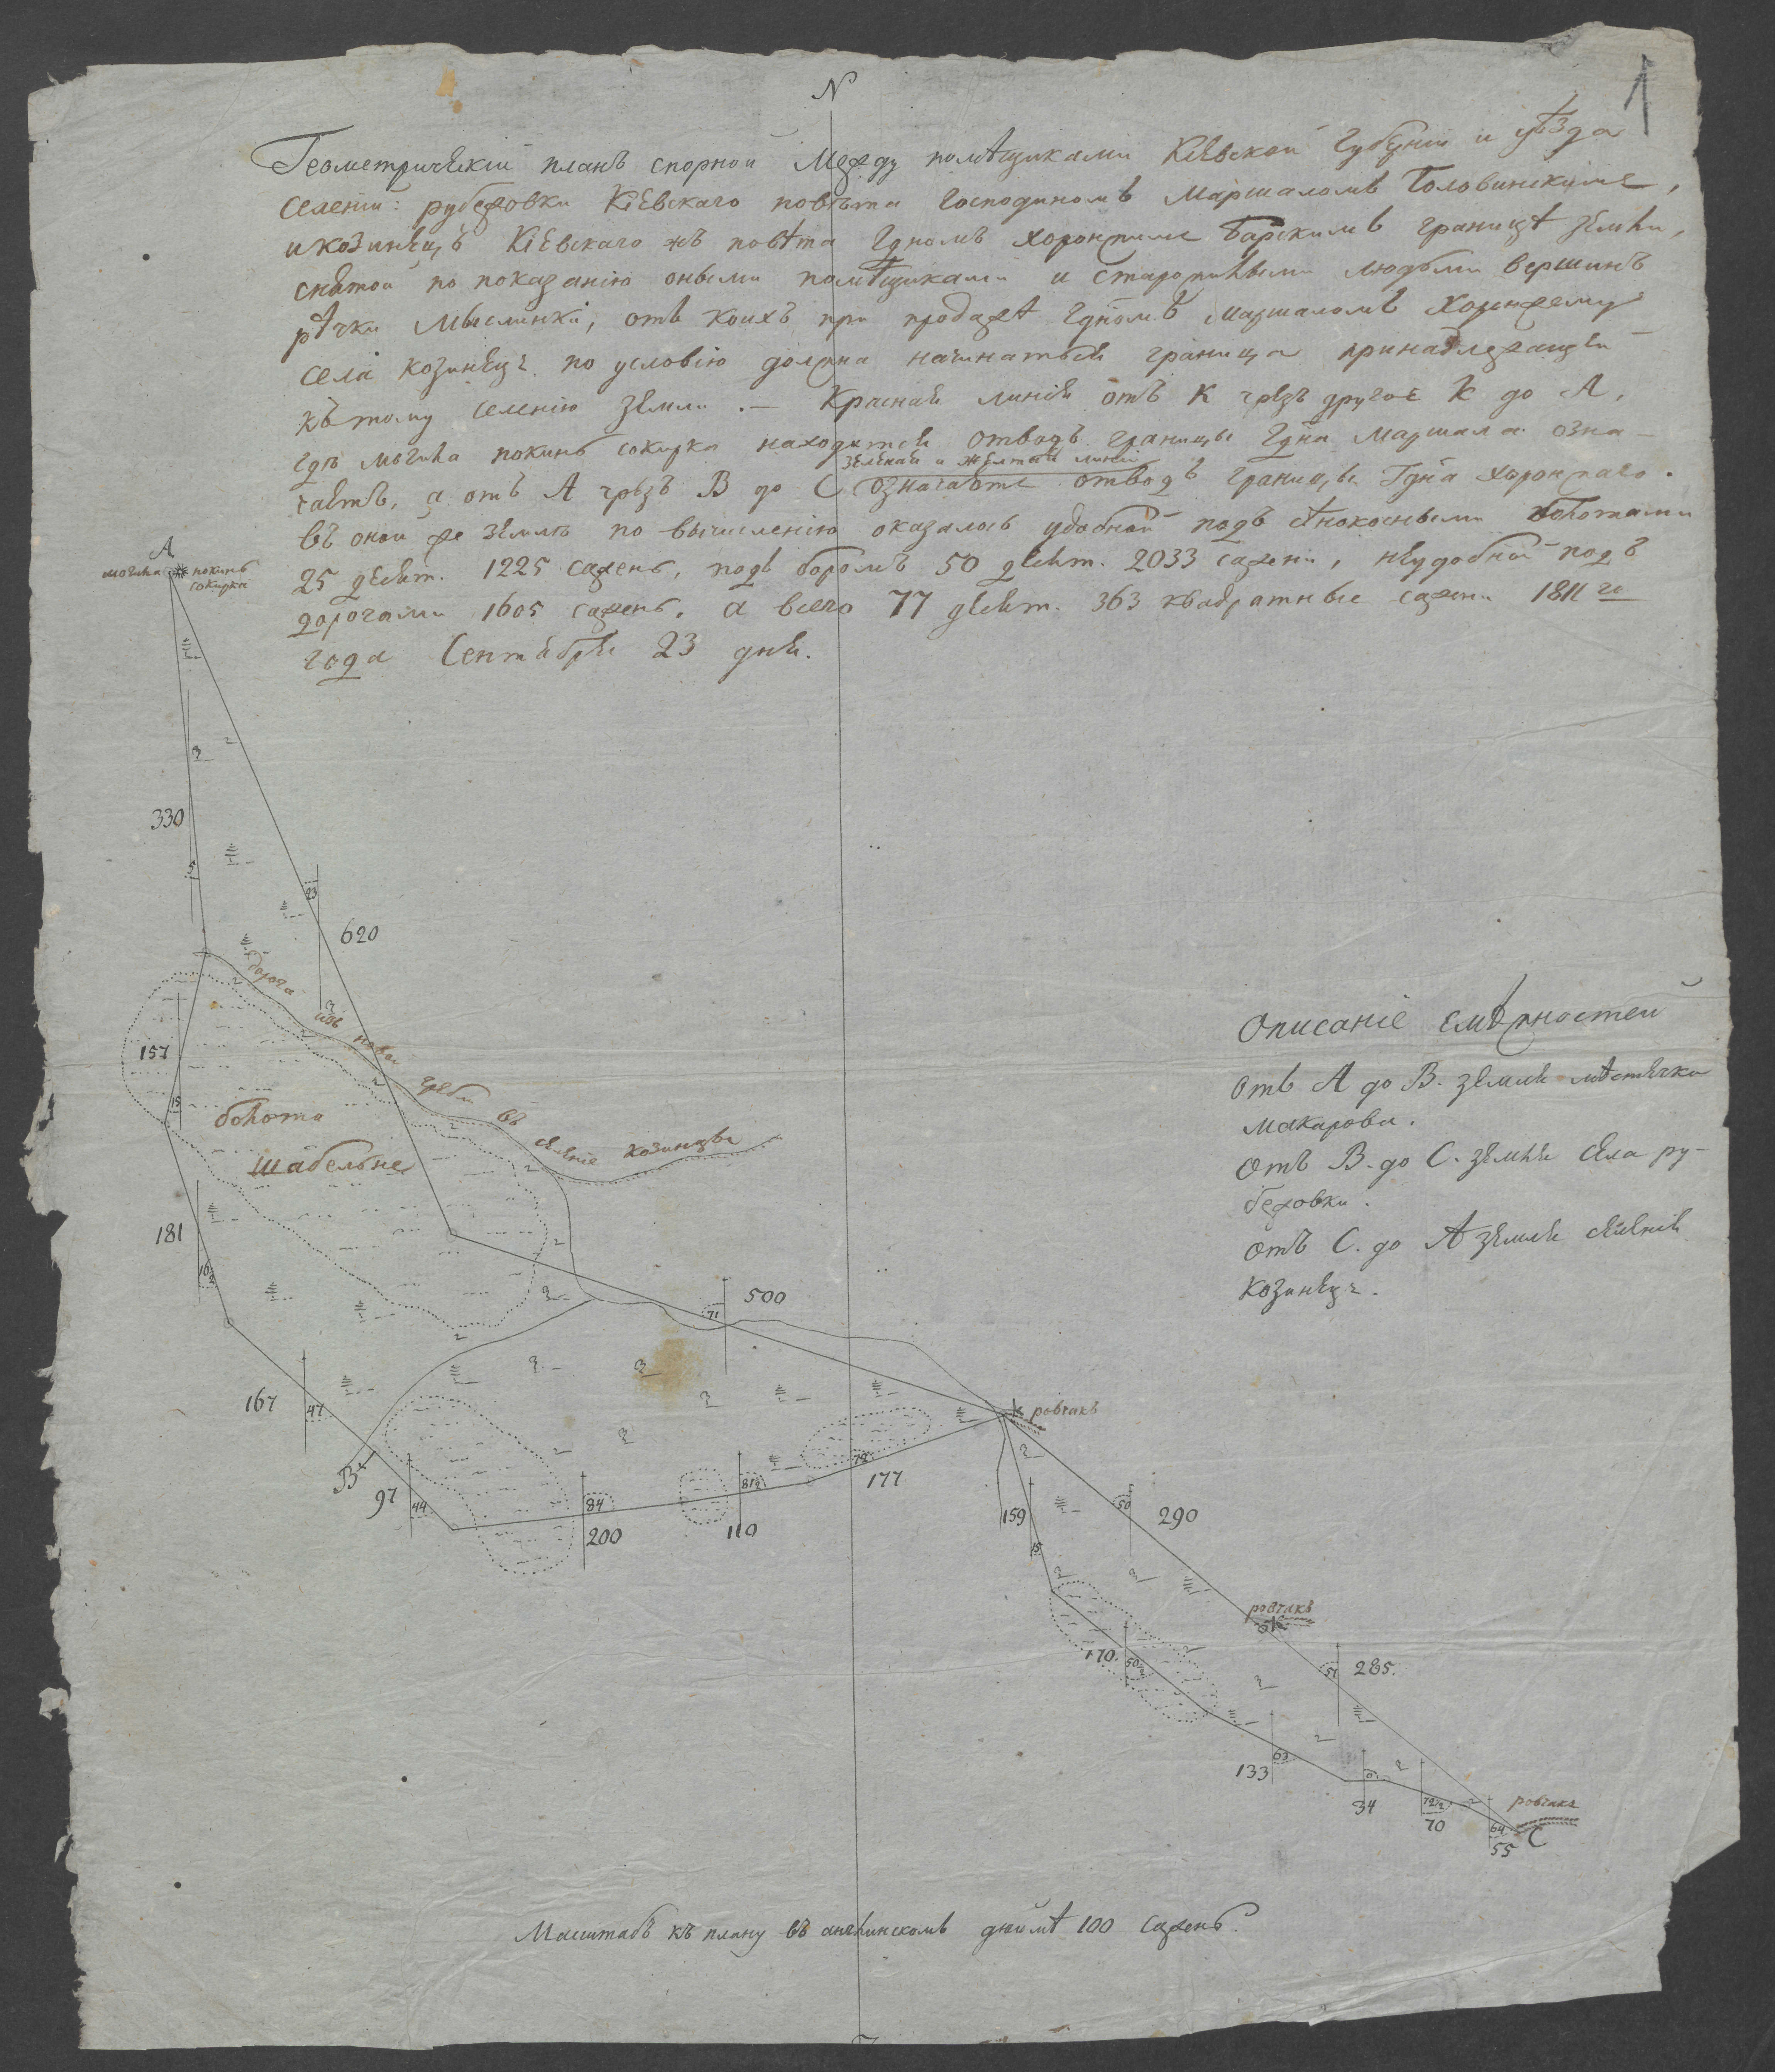 N
1
Геометрическій планъ спорной между помѣщиками Кіевской Губерніи и уѣзда
селеніи: рубежовки Кіевскаго повѣта Господиномъ Маршаломъ Головинскимъ,
и козинецъ Кіевскаго жъ повѣта Гдномъ хоронжимъ Барскимъ границѣ земли,
снятой по показанію оными помѣщиками и старожилыми людьми вершинъ
рѣчки Мыслинки, отъ коихъ при продажѣ Гдномъ маршаломъ Хоронжему
села козинецъ по условію должна начинаться граница принадлежащей
къ тому селенію земли. — Красная линія отъ K чрезъ другое K до A,
гдѣ могила покинь сокирка находится отводъ границы Гдна Маршала озна-
зеленая и желтая линіи
чаетъ, а отъ A чрезъ B до C означаютъ отводъ границы Гдна хоронжаго.
въ оной же землѣ по вычисленію оказалось удобной подъ сѣнокосными болотами
25 десят. 1225 сажень, подъ боромъ 50 десят. 2033 сажени, неудобной подъ
дорогами 1605 сажень. а всего 77 десят. 363 квадратные сажени 1811 го
года Сентября 23 дня.
A
могила покинь
сокирка
330
23
620
дорога изъ новой гребли въ селеніе козинцы
157
15
болото
шабельне
181
16½
71
500
167
47
B
97
44
84
200
81½
110
72
177
K ровчакъ
159
15
50
290
ровчакъ
K
170.
50½
51
285.
63
133
34
72½
70
64
55
ровчакъ
C
Описаніе смѣжностей
отъ A до B. земля мѣстечка
макарова.
отъ B. до C. земля села ру-
бежовки.
отъ C. до A земля селенія
козинецъ.
Масштабъ къ плану въ англинскомъ дюймѣ 100 сажень.